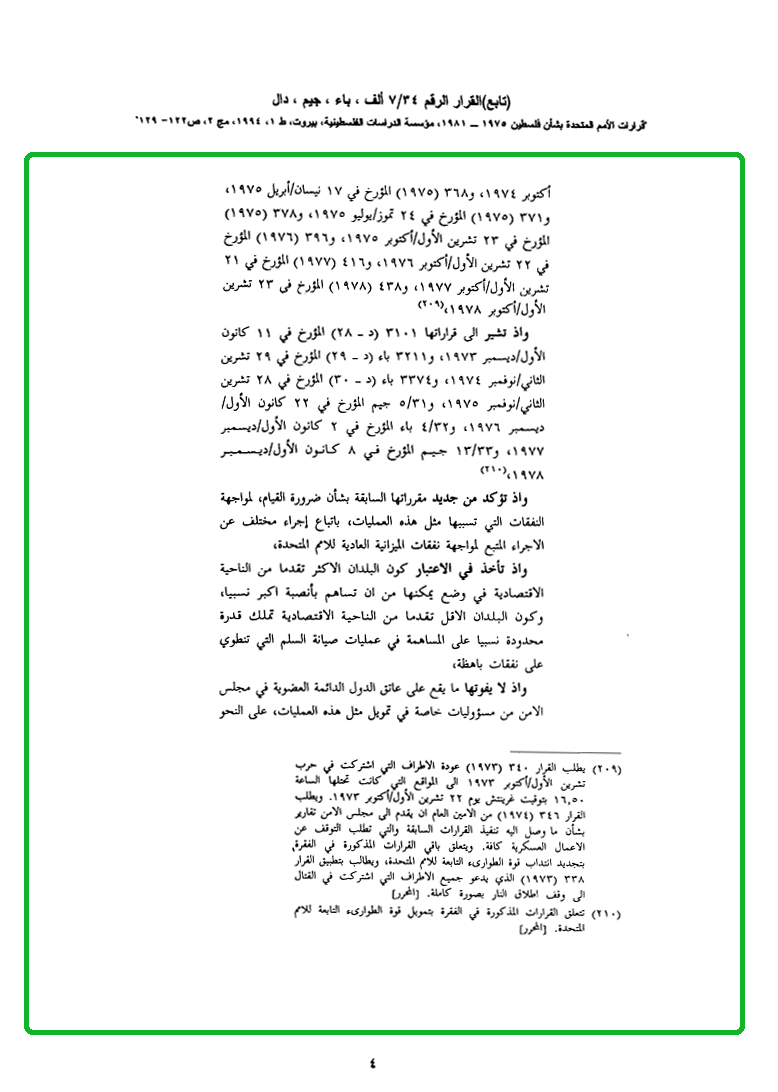 (تابع)القرار الرقم ٧/٣٤ ألف ، باء ، جيم ، دال
"قرارات الأمم المتحدة بشأن فلسطين ١٩٧٥ – ١٩٨١، مؤسسة الدراسات الفلسطينية، بيروت، ط ١، ١٩٩٤، مج ٢، ص١٢٢– ١٢٩"
أكتوبر ١٩٧٤، و٣٦٨ (١٩٧٥) المؤرخ في ١٧ نيسان/أبريل ١٩٧٥،
و٣٧١ (١٩٧٥) المؤرخ في ٢٤ تموز/يوليو ١٩٧٥، و٣٧٨ (١٩٧٥)
المؤرخ في ٢٣ تشرين الأول/أكتوبر ١٩٧٥، و٣٩٦ (١٩٧٦) المؤرخ
في ٢٢ تشرين الأول/أكتوبر ١٩٧٦، و٤١٦ (١٩٧٧) المؤرخ في ٢١
تشرين الأول/أكتوبر ١٩٧٧، و٤٣٨ (١٩٧٨) المؤرخ في ٢٣ تشرين
الأول/أكتوبر ١٩٧٨،(٢٠٩)
واذ تشير الى قراراتها ٣١٠١ (د – ٢٨) المؤرخ في ١١ كانون
الأول/ديسمبر ١٩٧٣، و٣٢١١ باء (د – ٢٩) المؤرخ في ٢٩ تشرين
الثاني/نوفمبر ١٩٧٤، و٣٣٧٤ باء (د – ٣٠) المؤرخ في ٢٨ تشرين
الثاني/نوفمبر ١٩٧٥، و٥/٣١ جيم المؤرخ في ٢٢ كانون الأول/
ديسمبر ١٩٧٦، و٤/٣٢ باء المؤرخ في ٢ كانون الأول/ديسمبر
١٩٧٧، و١٣/٣٣ جيم المؤرخ في ٨ كانون الأول/ديسمبر
١٩٧٨،(٢١٠)
واذ تؤكد من جديد مقرراتها السابقة بشأن ضرورة القيام، لمواجهة
النفقات التي تسببها مثل هذه العمليات، باتباع إجراء مختلف عن
الاجراء المتبع لمواجهة نفقات الميزانية العادية للامم المتحدة،
واذ تأخذ في الاعتبار كون البلدان الاكثر تقدما من الناحية
الاقتصادية في وضع يمكنها من ان تساهم بأنصبة اكبر نسبيا،
وكون البلدان الاقل تقدما من الناحية الاقتصادية تملك قدرة
محدودة نسبيا على المساهمة في عمليات صيانة السلم التي تنطوي
على نفقات باهظة،
واذ لا يفوتها ما يقع على عاتق الدول الدائمة العضوية في مجلس
الامن من مسؤوليات خاصة في تمويل مثل هذه العمليات، على النحو
(٢٠٩) يطلب القرار ٣٤٠ (١٩٧٣) عودة الاطراف التي اشتركت في حرب
تشرين الأول/أكتوبر ١٩٧٣ الى المواقع التي كانت تحتلها الساعة
١٦,٥٠ بتوقيت غرينتش يوم ٢٢ تشرين الأول/أكتوبر ١٩٧٣. ويطلب
القرار ٣٤٦ (١٩٧٤) من الامين العام ان يقدم الى مجلس الامن تقارير
بشأن ما وصل اليه تنفيذ القرارات السابقة والتي تطلب التوقف عن
الاعمال العسكرية كافة. ويتعلق باقي القرارات المذكورة في الفقرة
بتجديد انتداب قوة الطوارىء التابعة للامم المتحدة، ويطالب بتطبيق القرار
٣٣٨ (١٩٧٣) الذي يدعو جميع الاطراف التي اشتركت في القتال
الى وقف اطلاق النار بصورة كاملة. [المحرر]
(٢١٠) تتعلق القرارات المذكورة في الفقرة بتمويل قوة الطوارىء التابعة للامم
المتحدة. [المحرر]
٤